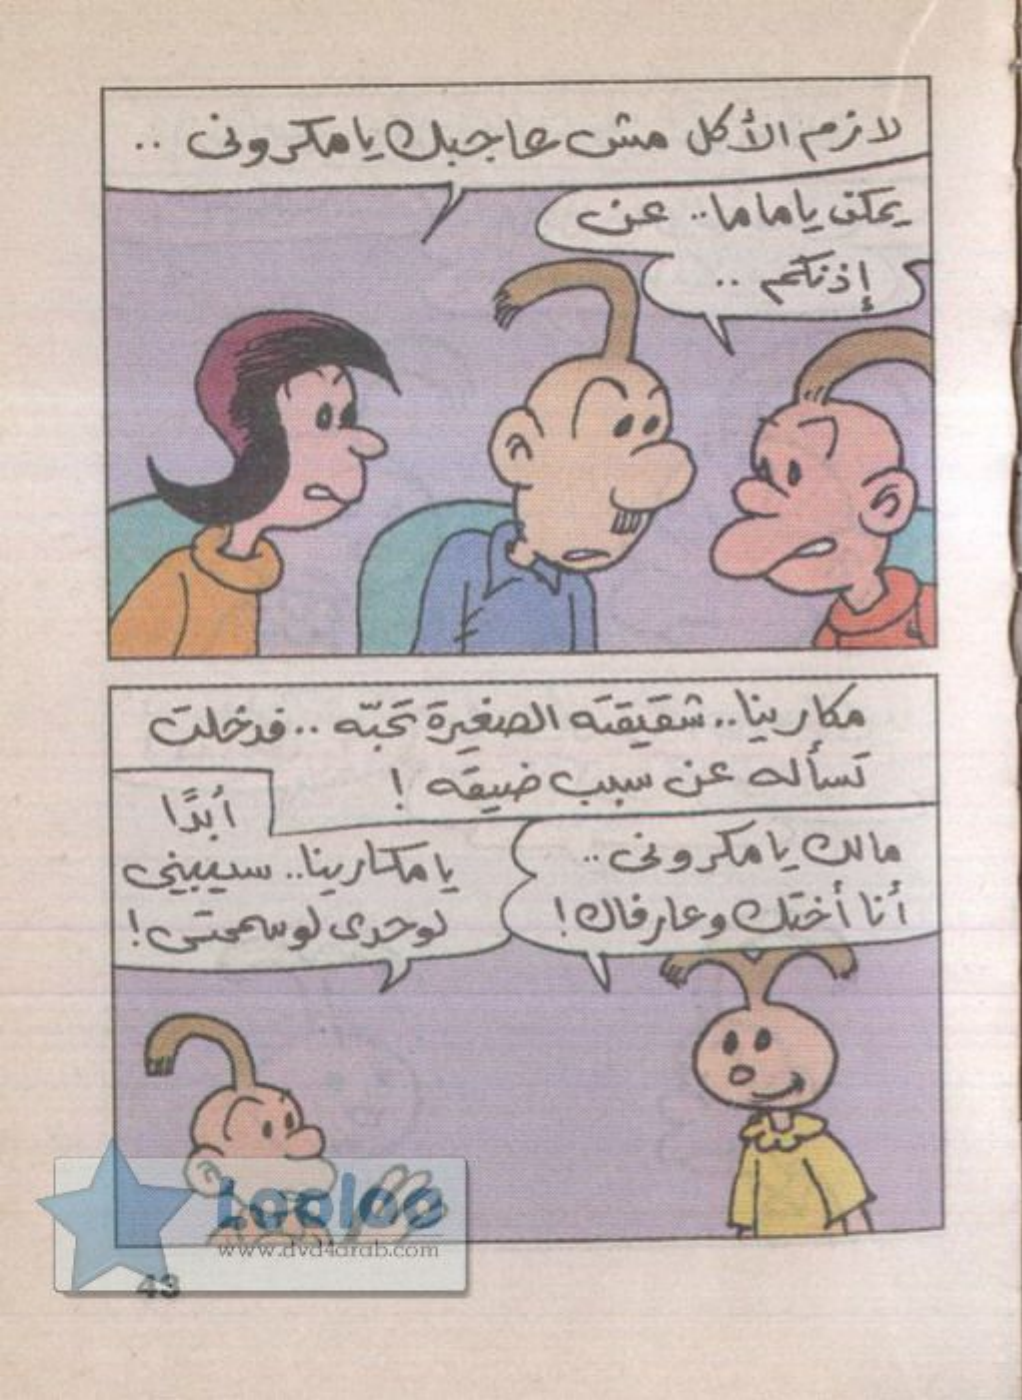 لازم الأكل مش عاجبك يا مكرونى ..
يمكن يا ماما.. عن
إذنكم ..
مكارينا.. شقيقته الصغيرة تحبّه .. فدخلت
تسأله عن سبب ضيقه !
مالك يا مكرونى ..
أنا أختك وعارفاك!
أبدًا
يا مكارينا.. سيبينى
لوحدى لو سمحتى!
Looloo
www.dvd4arab.com
43